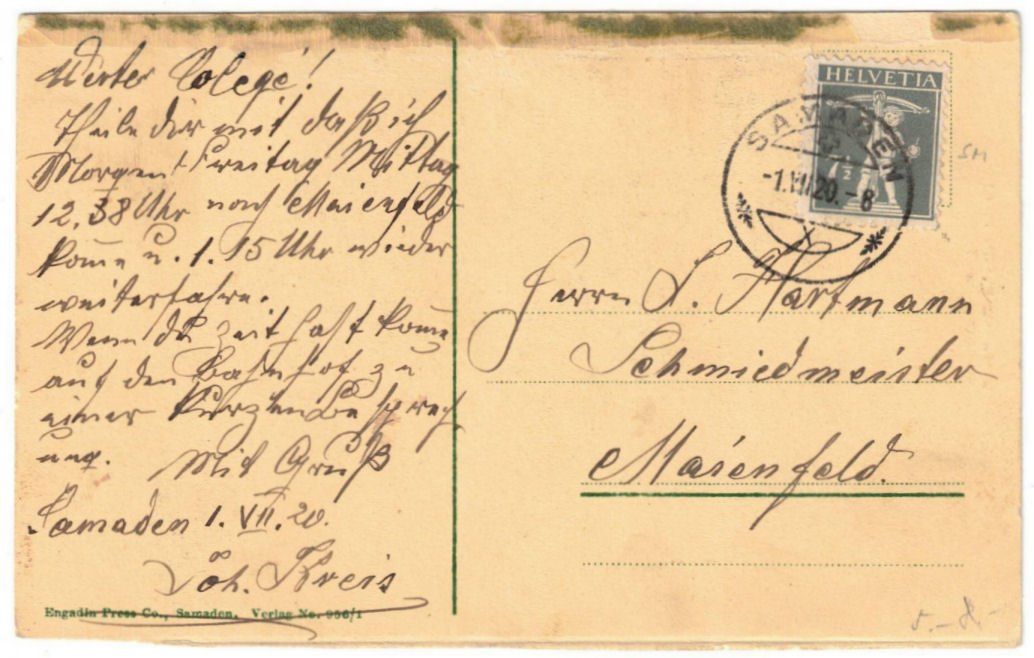 Werter Colege!
Theile dir mit daß ich
Morgen Freitag Mittag
12,38 Uhr nach Maienfeld
kome u. 1.15 Uhr wieder
weiterfahre.
Wenn du Zeit hast kome
auf den Bahnhof zu
einer kurzen Besprech
ung.
Mit Gruß
Samaden 1. VII. 20.
Joh. Kreis
Engadin Press Co., Samaden. Verlag No. 956/1
HELVETIA
SAMADEN
-1.VII.20.-8
X
SM
Herrn L. Hartmann
Schmiedmeister
Maienfeld.
5.- 8.-